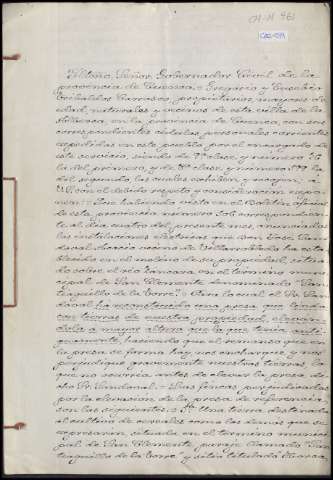 CA-N 963
CAJ-071
Iltmo. Señor Gobernador Civil de la
provincia de Cuenca.= Gregorio y Eusebio
Cribaldos Carrasco, propietarios, mayores de
edad, naturales y vecinos de esta villa de la
Alberca, en la provincia de Cuenca, con sus
correspondientes cédulas personales corrientes
expedidas en este pueblo por el encargado de
este servicio, siendo de 7ª clase y número 76
la del primero, y de clase y número
la del segundo, las cuales exhiben y recogen, á
V.S. con el debido respeto y consideración expo-
nen:= Que habiendo visto en el Boletín oficial
de esta provincia número 306 correspondien-
te al día cuatro del presente mes, anunciadas
las instalaciones eléctricas que don José San-
doval vecino de Villarrobledo ha esta-
blecido en el molino de su propiedad, situa-
do sobre el río Záncara en el término muni-
cipal de San Clemente denominado "San-
tiaguillo de la Torre".- Para lo cual el Sr. San-
doval ha reconstruido una presa que linda
con tierras de nuestra propiedad, eleván-
dola á mayor altura que la que tenía anti-
guamente, haciendo que el remanso que en
la presa se forma hay nos encharque y nos
perjudique gravemente nuestras tierras, lo
que no ocurría antes de elevar la presa di-
cho Sr. Sandoval.- Las fincas perjudicadas
por la elevación de la presa de referencia,
son las siguientes:= 1ª Una tierra destinada
al cultivo de cereales como las demás que se
expresarán situada en el término munici-
pal de San Clemente, paraje llamado "San-
tiaguillo de la Torre" y sitio titulado